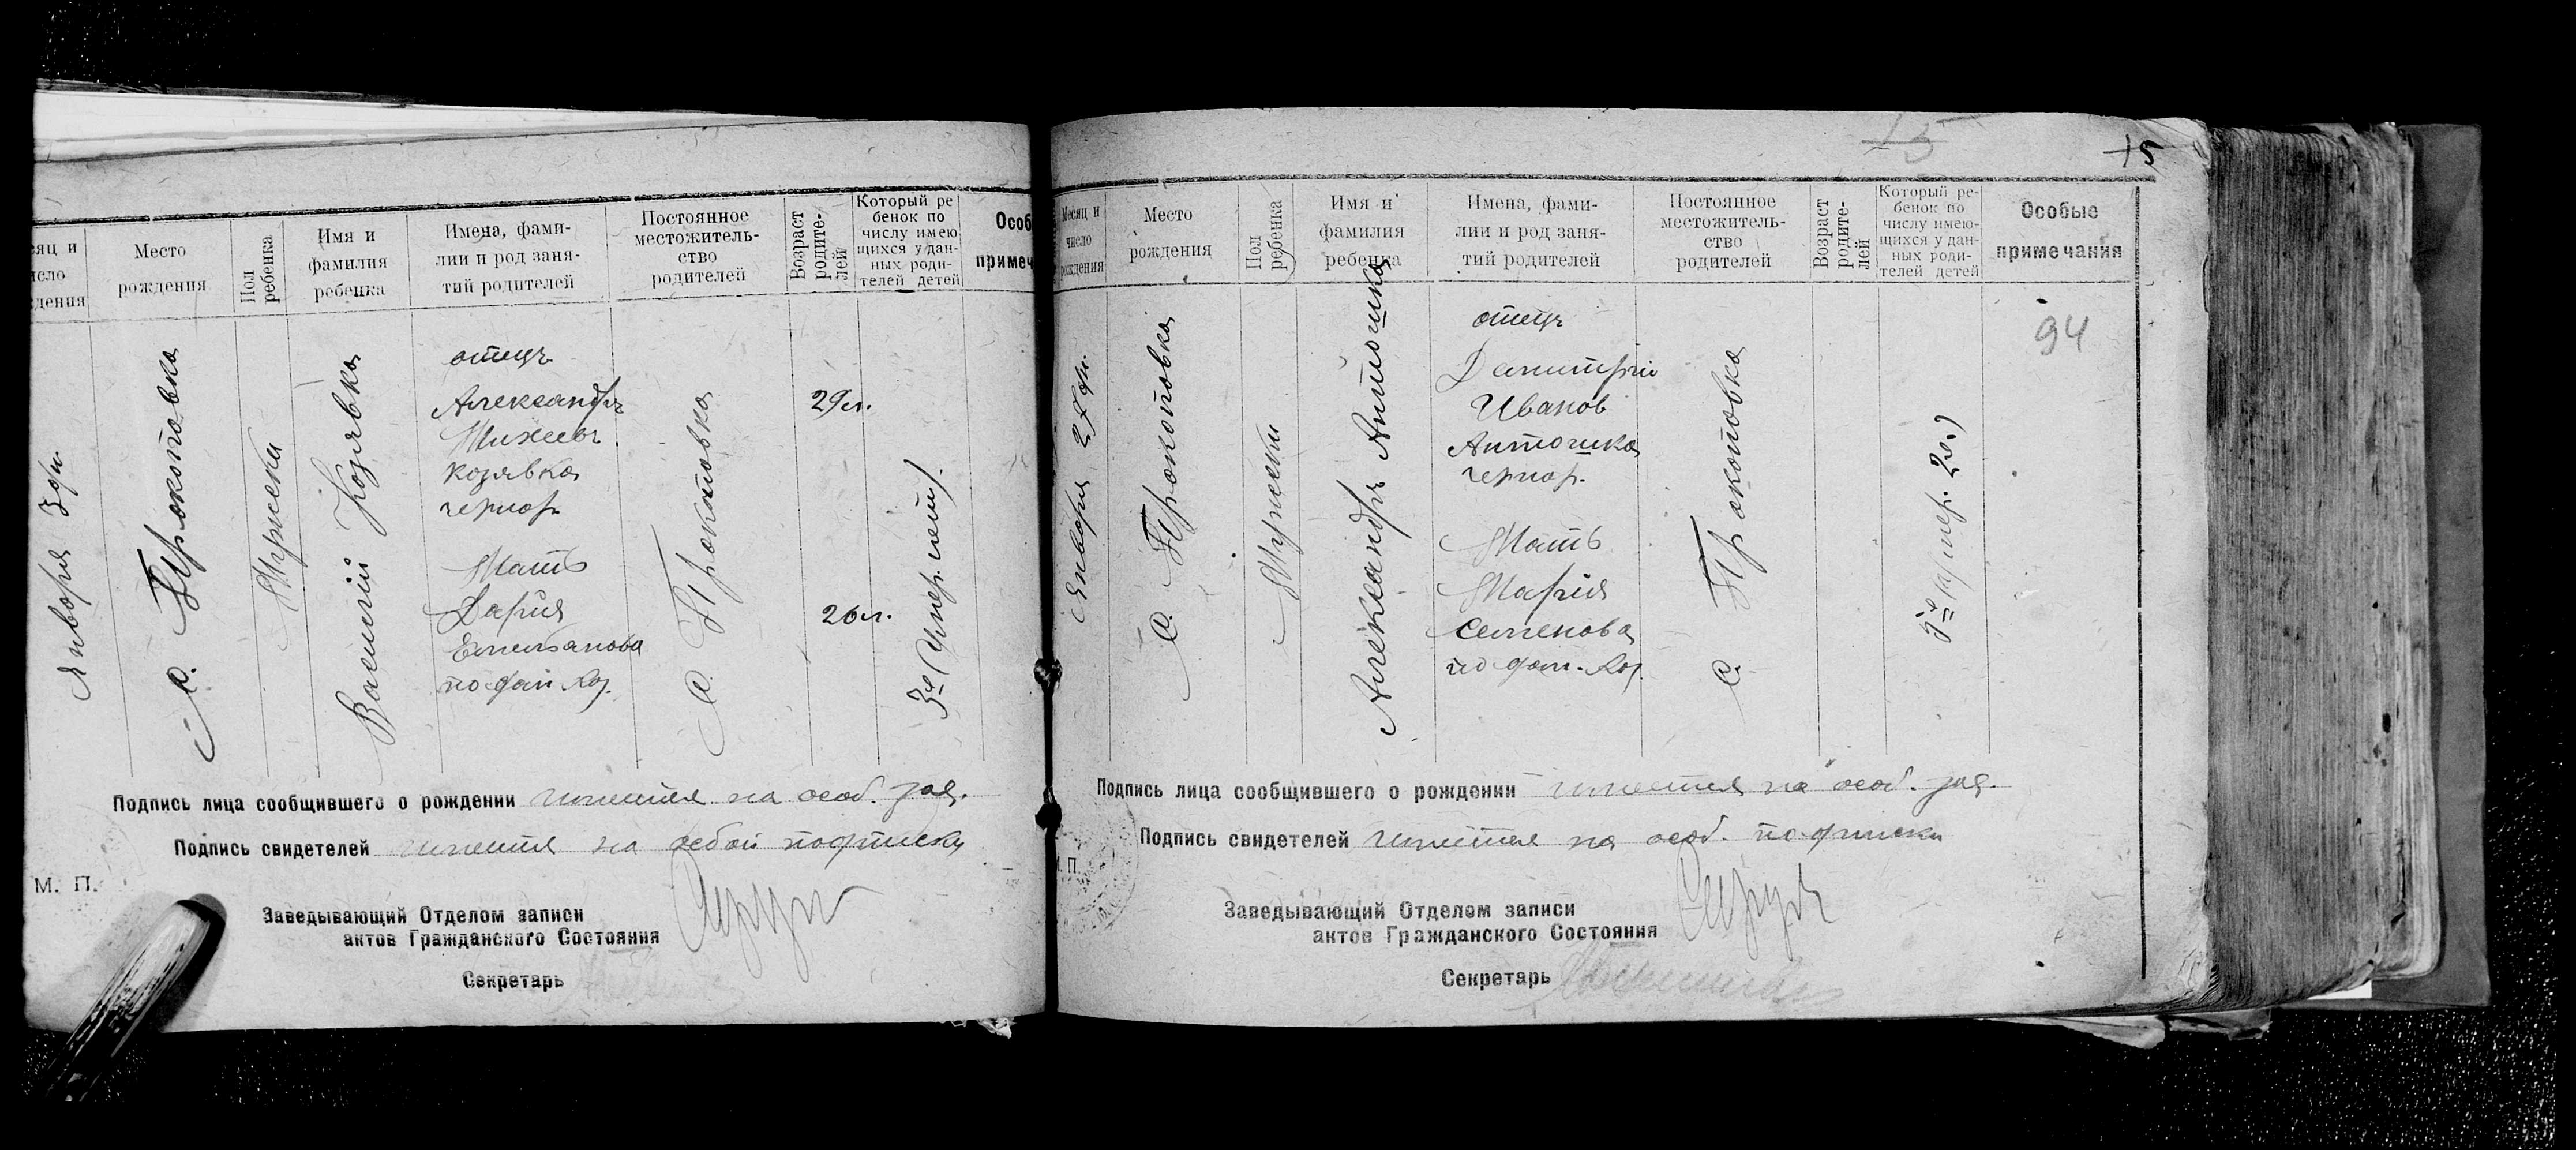 сяц и
исло
ждения
Место
рождения
Пол
ребенка
Имя и
фамилия
ребенка
Имена, фами-
лии и род заня-
тий родителей
Постоянное
местожитель-
ство
родителей
Возраст
родите-
лей
Который ре
бенок по
числу имею
щихся у дан-
ных роди-
телей детей
Особ
примеч
Января 3 дн.
с. Прокоповка
Мужески
Василий Козявка
отець
Александръ
Михеевъ
Козявка
чернор.
Мать
Дария
Емельанова
по фам. Коз.
с. Прокоповка
29 л.
26 л.
3й
Подпись лица сообщившего о рождении имеется на особ. зая.
Подпись свидетелей имеется на особой подписки
М. П.
Заведывающий Отделом записи
актов Гражданского Состояния
Секретарь
15
15
Месяц и
число
рождения
Место
рождения
Пол
ребенка
Имя и
фамилия
ребенка
Имена, фами-
лии и род заня-
тий родителей
Постоянное
местожитель-
ство
родителей
Возраст
родите-
лей
Который ре-
бенок по
числу имею-
щихся у дан-
ных роди-
телей детей
Особые
примечания
94
Января 2 дн.
с. Прокоповка
Мужески
Александръ Антошка
отець
Димитрий
Иванов
Антошка
чернор.
Мать
Мария
Семенова
по фам. Коз.
с. Прокоповка
Подпись лица сообщившего о рождении имеется на особ. зая.
Подпись свидетелей имеется на особ. подписки
М. П.
Заведывающий Отделом записи
актов Гражданского Состояния
Секретарь